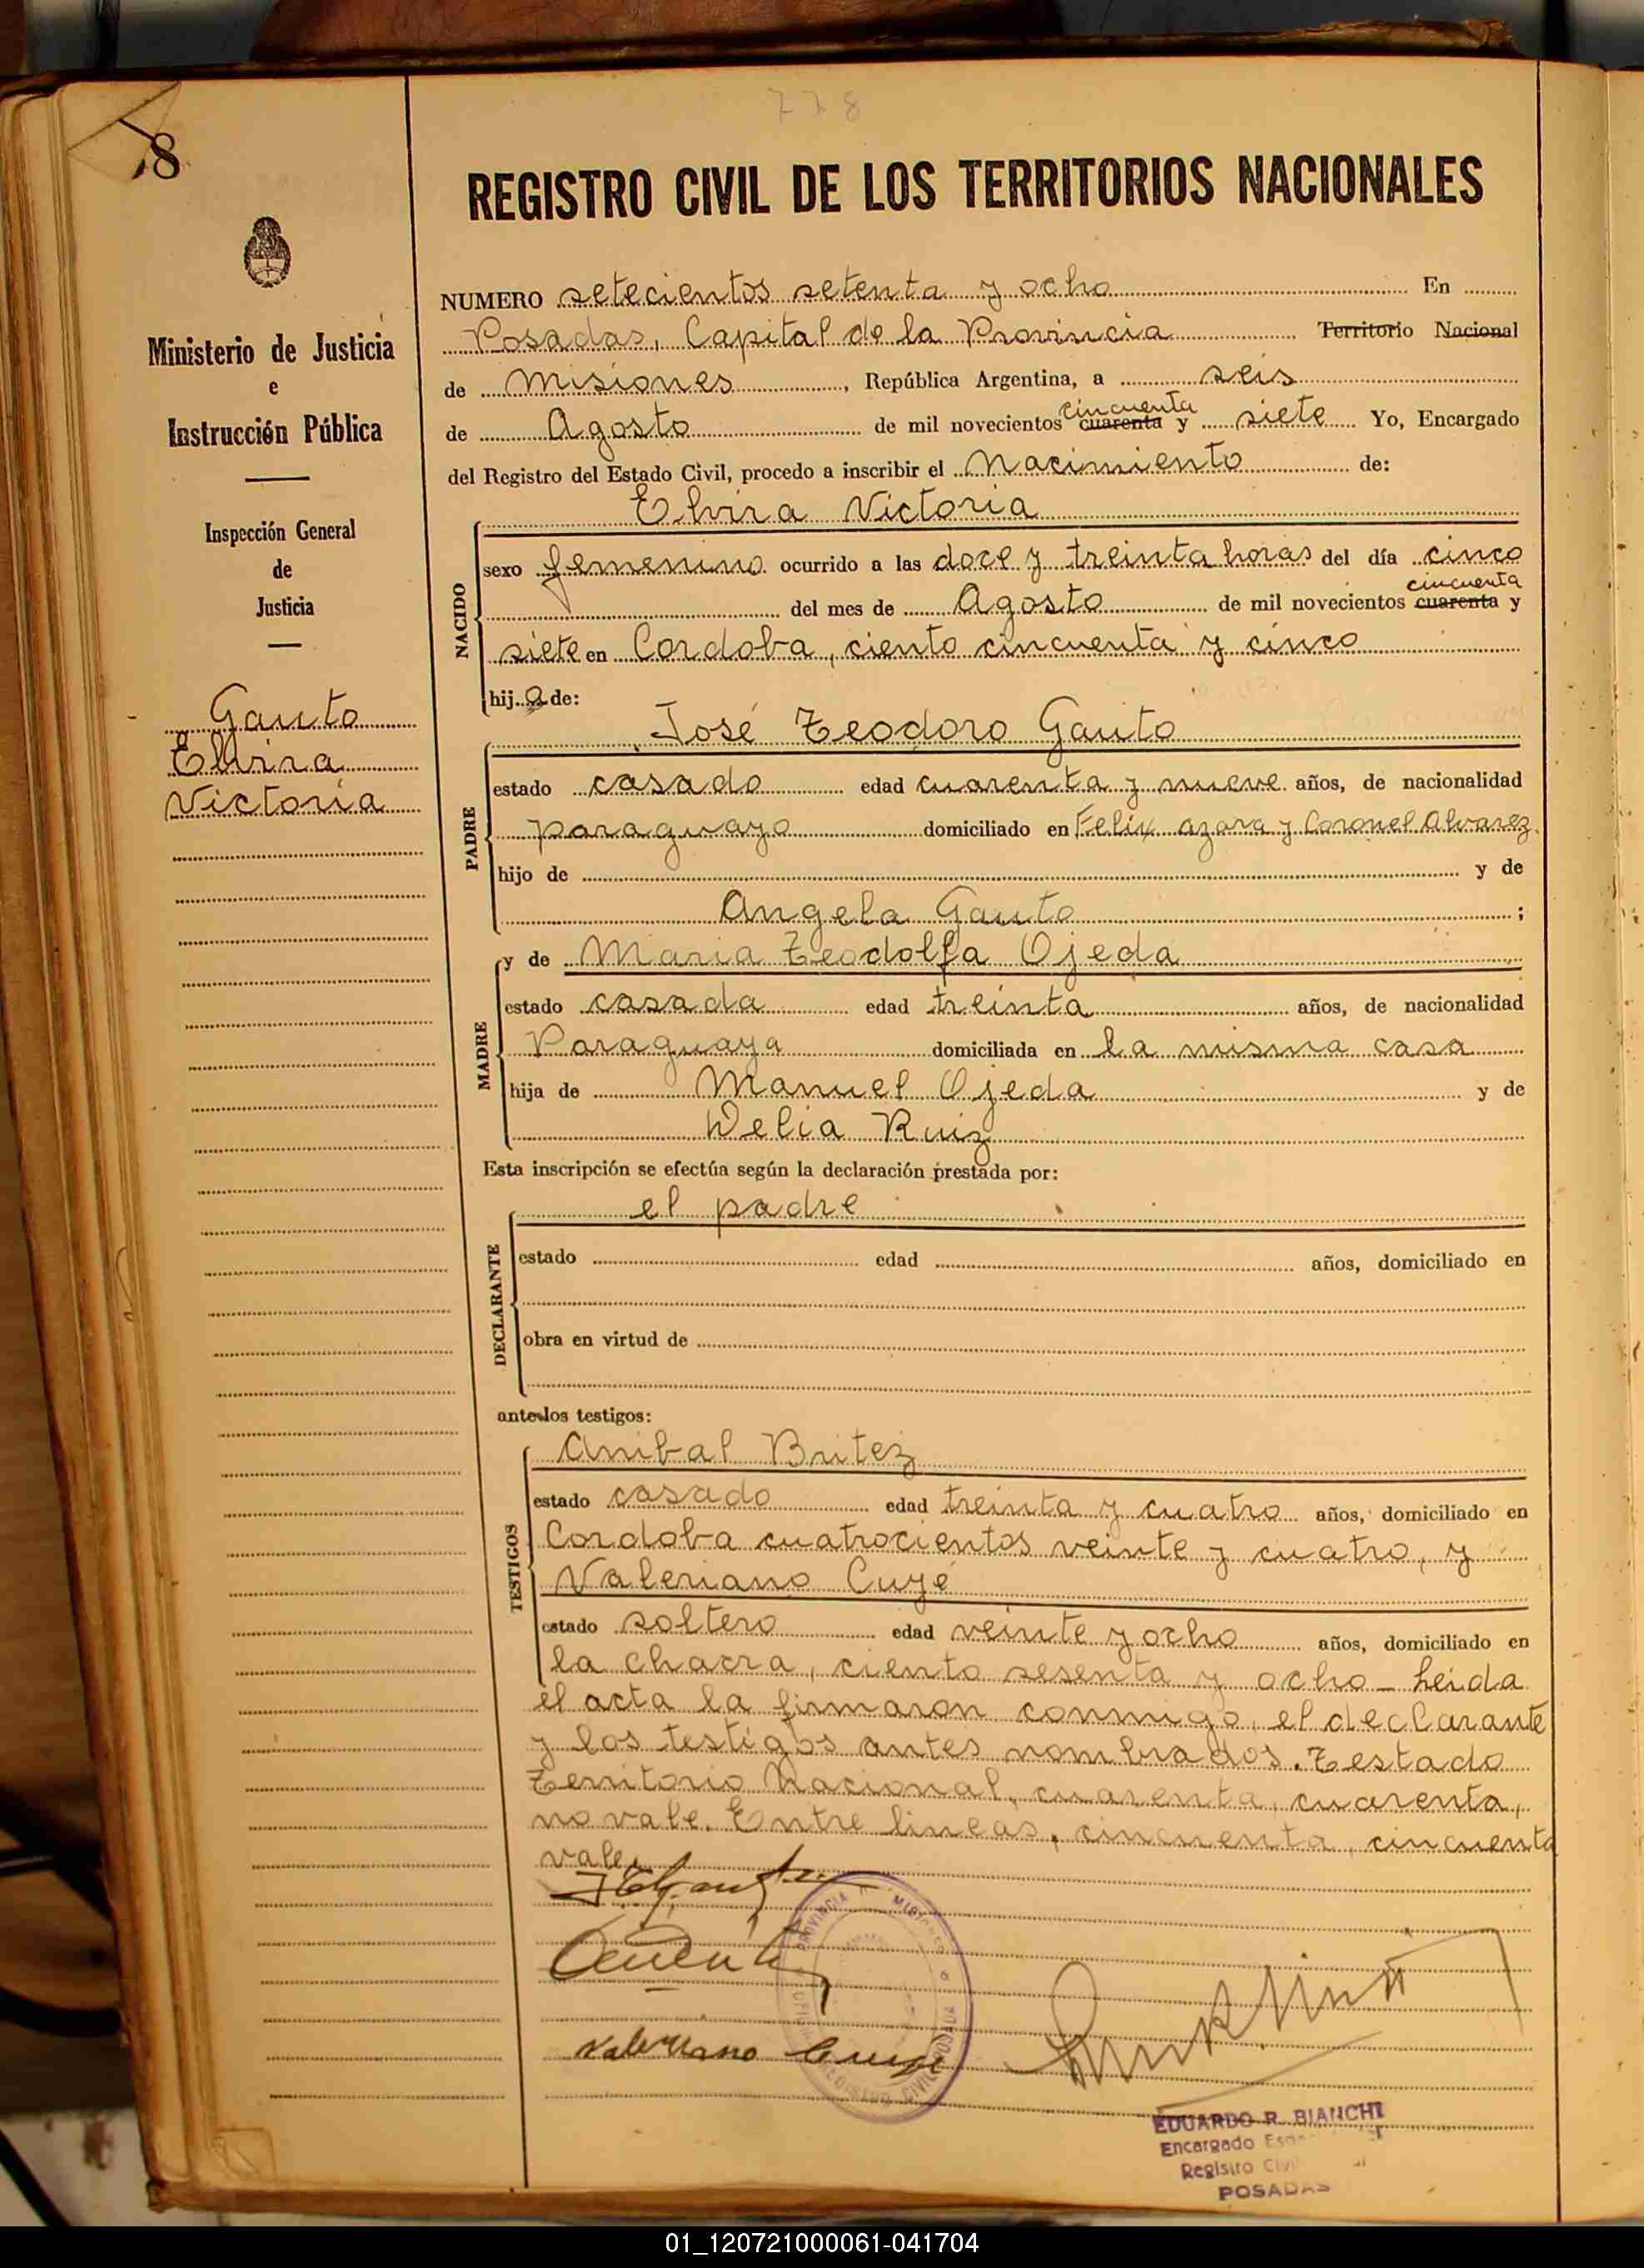 778
78
REGISTRO CIVIL DE LOS TERRITORIOS NACIONALES
Ministerio de Justicia
e
Instrucción Pública
Inspección General
de
Justicia
Gauto
Elvira
Victoria
NUMERO setecientos setenta y ocho En
Posadas, Capital de la Provincia Territorio Nacional
de Misiones, República Argentina, a seis
de Agosto de mil novecientos cuarenta cincuenta y siete Yo, Encargado
del Registro del Estado Civil, procedo a inscribir el Nacimiento de:
NACIDO
Elvira Victoria
sexo femenino ocurrido a las doce y treinta horas del día cinco
del mes de Agosto de mil novecientos cuarenta cincuenta y
siete en Cordoba, ciento cincuenta y cinco
hija de:
PADRE
José Teodoro Gauto
estado casado edad cuarenta y nueve años, de nacionalidad
paraguayo domiciliado en Felix azara y Coronel Alvarez.
hijo de y de
Angela Gauto ;
MADRE
y de Maria Teodolfa Ojeda
estado casada edad treinta años, de nacionalidad
Paraguaya domiciliada en la misma casa
hija de Manuel Ojeda y de
Delia Ruiz
Esta inscripción se efectúa según la declaración prestada por:
DECLARANTE
el padre
estado edad años, domiciliado en
obra en virtud de
ante los testigos:
TESTIGOS
Anibal Britez
estado casado edad treinta y cuatro años, domiciliado en
Cordoba cuatrocientos veinte y cuatro, y
Valeriano Cuyé
estado soltero edad veinte y ocho años, domiciliado en
la chacra, ciento sesenta y ocho - Leida
el acta la firmaron conmigo, el declarante
y los testigos antes nombrados. Testado
Territorio Nacional, cuarenta, cuarenta,
no vale. Entre lineas, cincuenta, cincuenta
vale.
Valeriano Cuyé
PROVINCIA MISIONES
REGISTRO CIVIL POSADAS
EDUARDO R. BIANCHI
Encargado
Registro Civil
POSADAS
01_120721000061-041704